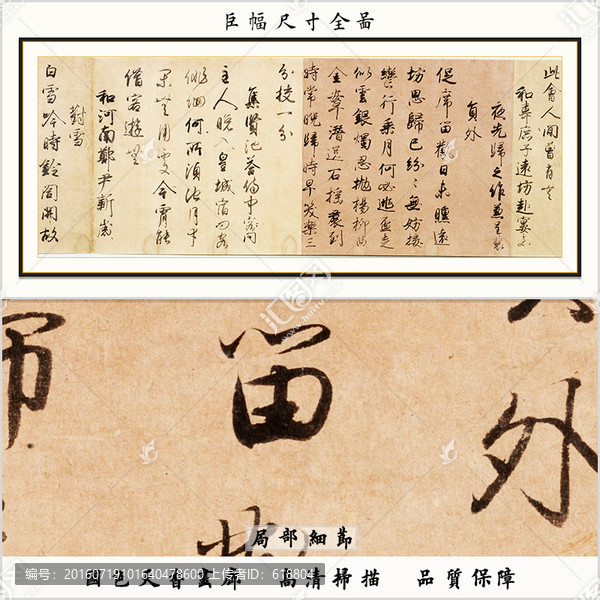 巨幅尺寸全图
此會人間曾有無
和韋庶子遠坊赴宴未
夜先歸之作兼呈裴
員外
促席留歡日未曛遠
坊思歸已紛紛無妨按
轡行乘月何必逃盃走
似雲銀燭忍拋楊柳曲
金鞍潛送石榴裙到
時常晚歸時早笑樂三
分校一分
集賢池答侍中問
主人晚入皇城宿問客
徘徊何所須池月幸
閑無用處今宵能
借客遊無
和河南鄭尹新歲
對雪
白雪吟時鈴閣開故
外
留
局部細節
高清掃描 品質保障
编号：20160719101640478600 上传者ID：618804